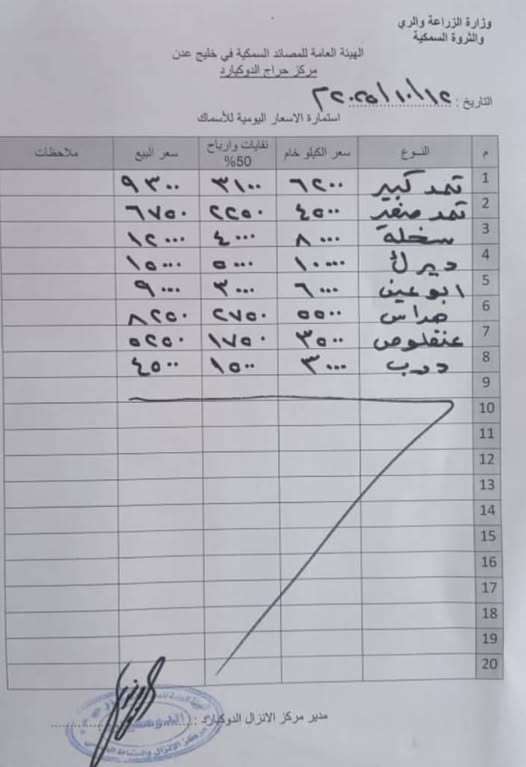 وزارة الزراعة والري
والثروة السمكية
الهيئة العامة للمصائد السمكية في خليج عدن
مركز حراج الدوكيارد
التاريخ : ١٢/١٠/٢٠٢٥م
استمارة الاسعار اليومية للأسماك
م النوع سعر الكيلو خام نفايات وارباح 50% سعر البيع ملاحظات
1 ثمد كبير ٦٢٠٠ ٣١٠٠ ٩٣٠٠
2 ثمد صغير ٤٥٠٠ ٢٢٥٠ ٦٧٥٠
3 سخلة ٨٠٠٠ ٤٠٠٠ ١٢٠٠٠
4 ديرك ١٠٠٠٠ ٥٠٠٠ ١٥٠٠٠
5 ابو عين ٦٠٠٠ ٣٠٠٠ ٩٠٠٠
6 ٥٥٠٠ ٢٧٥٠ ٨٢٥٠
7 عنفلوص ٣٥٠٠ ١٧٥٠ ٥٢٥٠
8 درب ٣٠٠٠ ١٥٠٠ ٤٥٠٠
9
10
11
12
13
14
15
16
17
18
19
20
مدير مركز الانزال الدوكيارد :